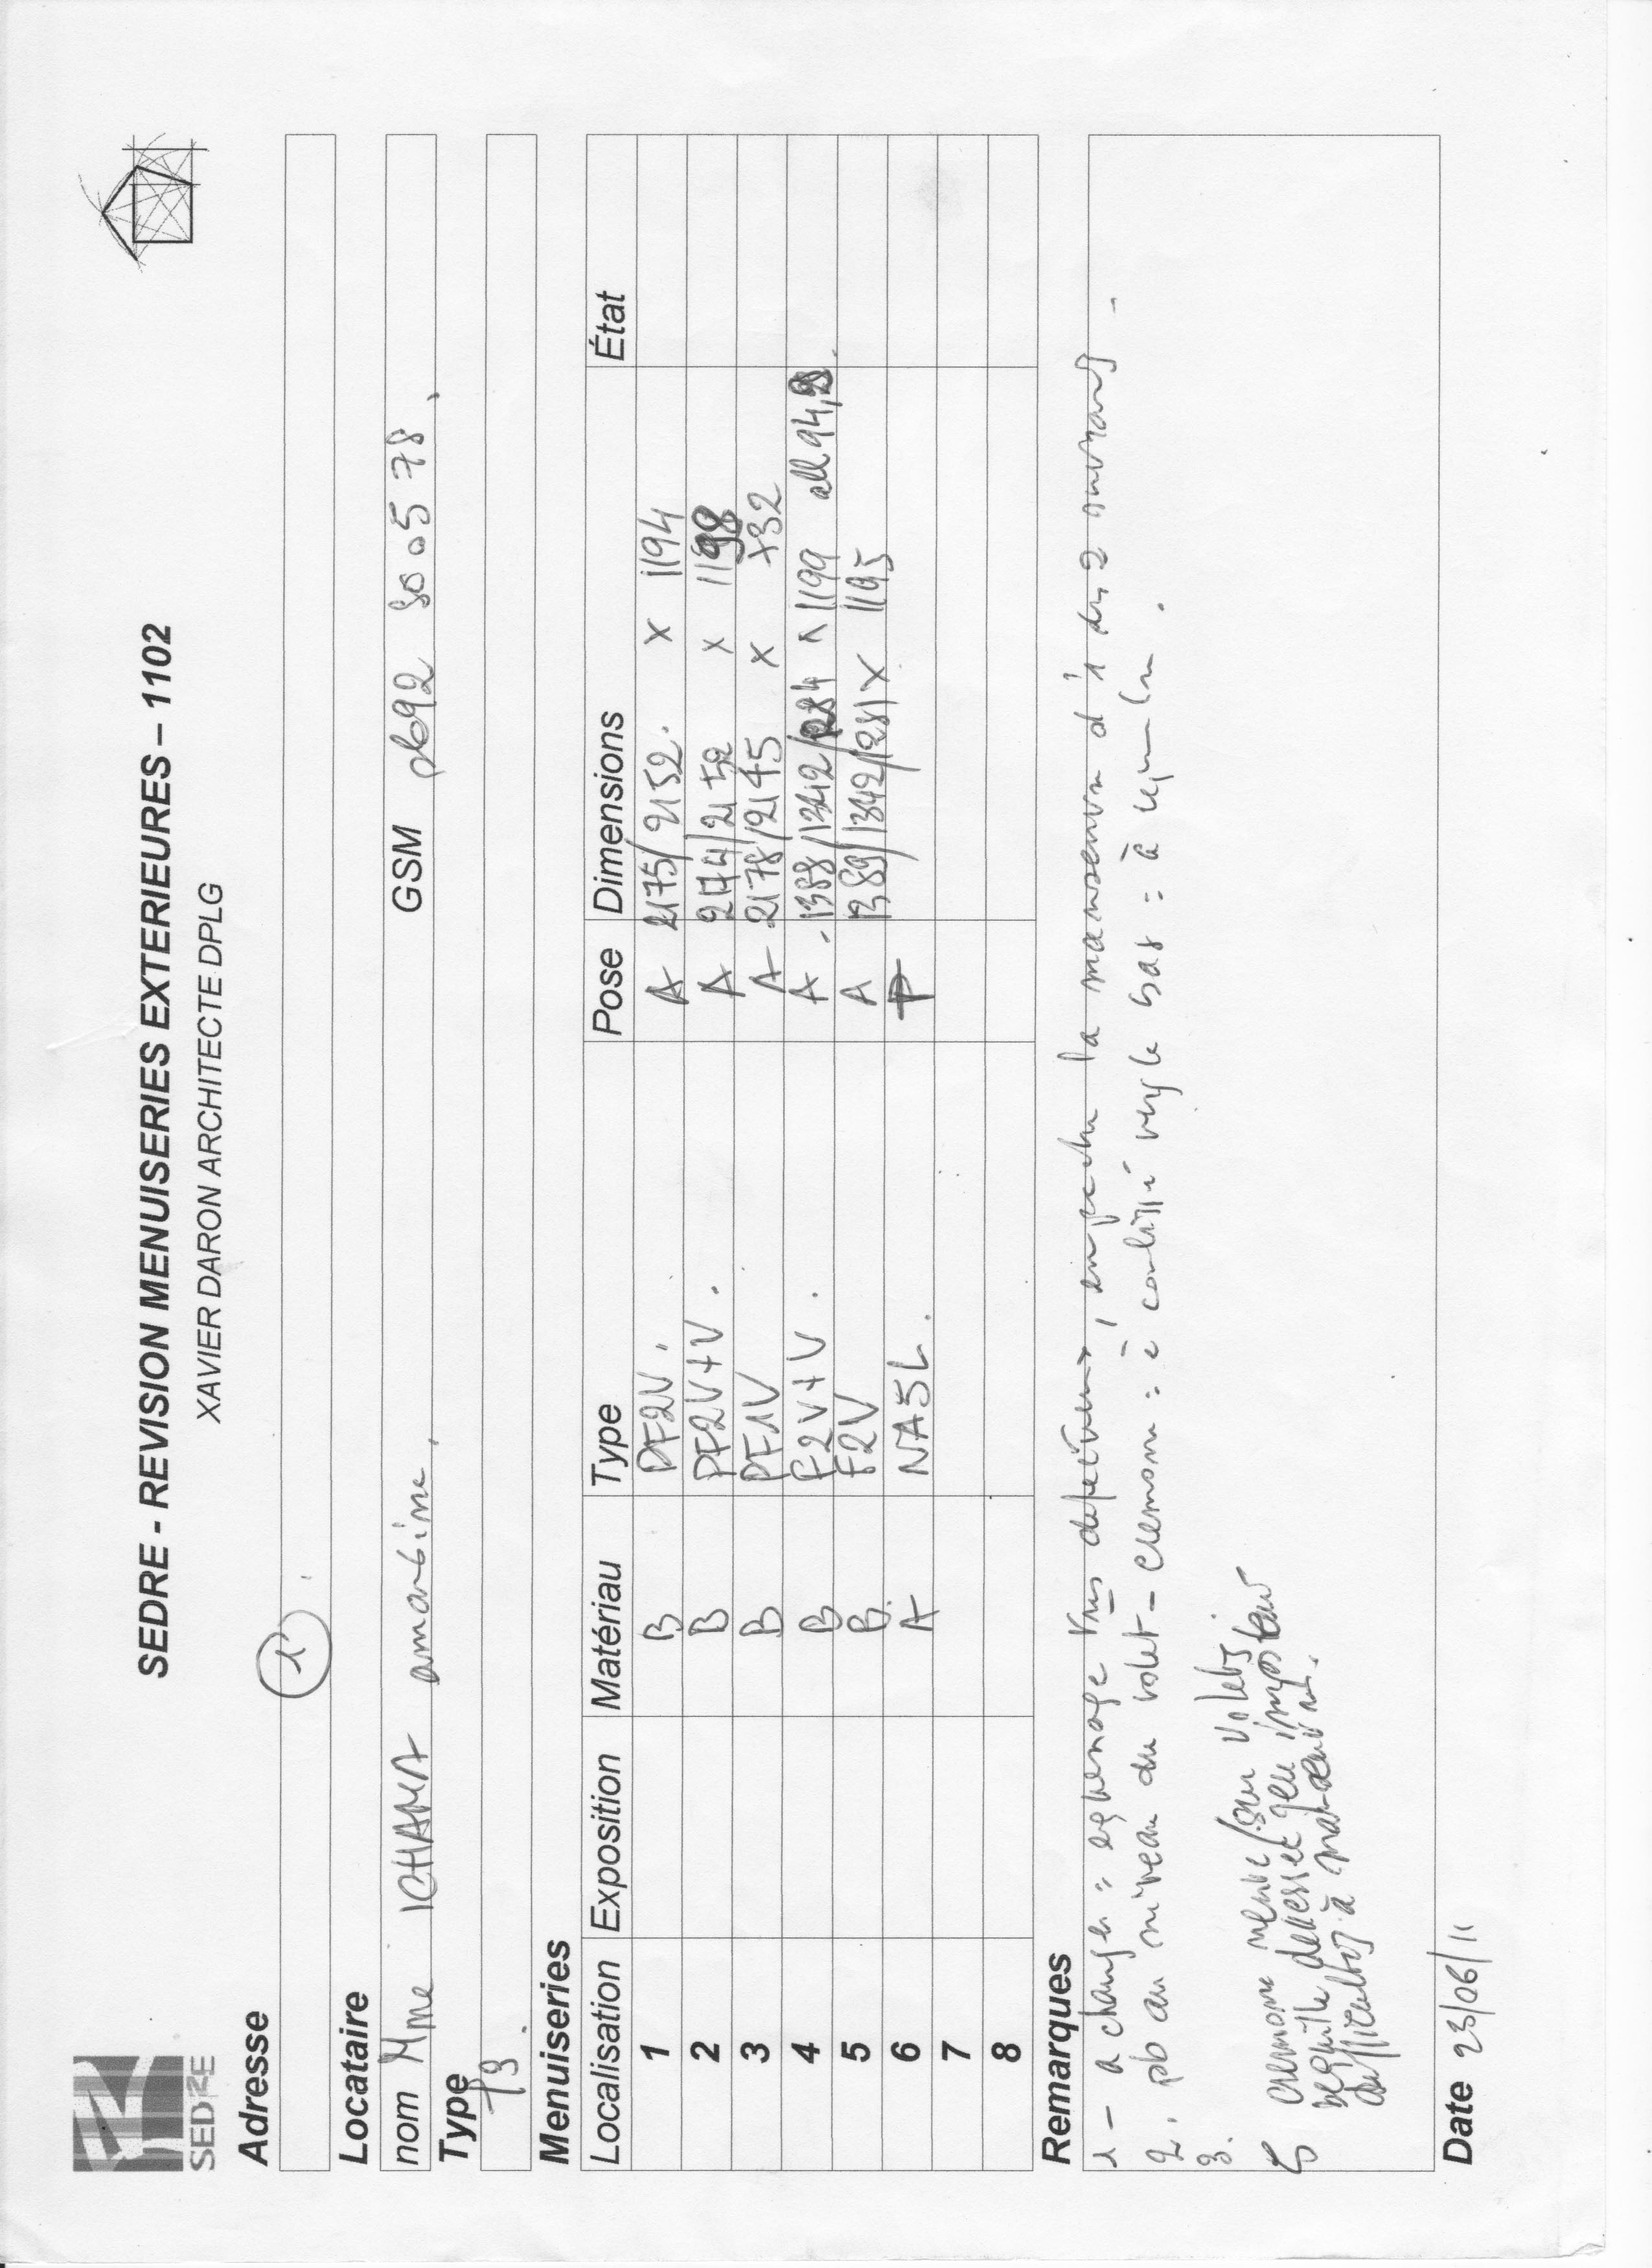 SEDRE
SEDRE - REVISION MENUISERIES EXTERIEURES – 1102
XAVIER DARON ARCHITECTE DPLG
Adresse
1
Locataire
nom Mme ICHAMA amarsime GSM 0692 80 05 78
Type
T3
Menuiseries
Localisation Exposition Matériau Type Pose Dimensions État
1 B PF2V. A 2175/2152. x 1194
2 B PF2V+V. A 2174/2152 x 1198
3 B PF1V A 2178/2145 x +32
4 B F2V+V. A 1388/1342/1284 x 1199 all 94,
5 B. F2V A 1389/1342/1281 x 1195
6 A NA5L. P
7
8
Remarques
1 - a changer = equerrage très défectueux, empeche la manoeuvre d'1 des 2 ouvrants -
2. pb au niveau du volet - cremone = bas = à
3.
5 cremone volets
jeu important
difficultés à manoeuvrer.
Date 23/06/11